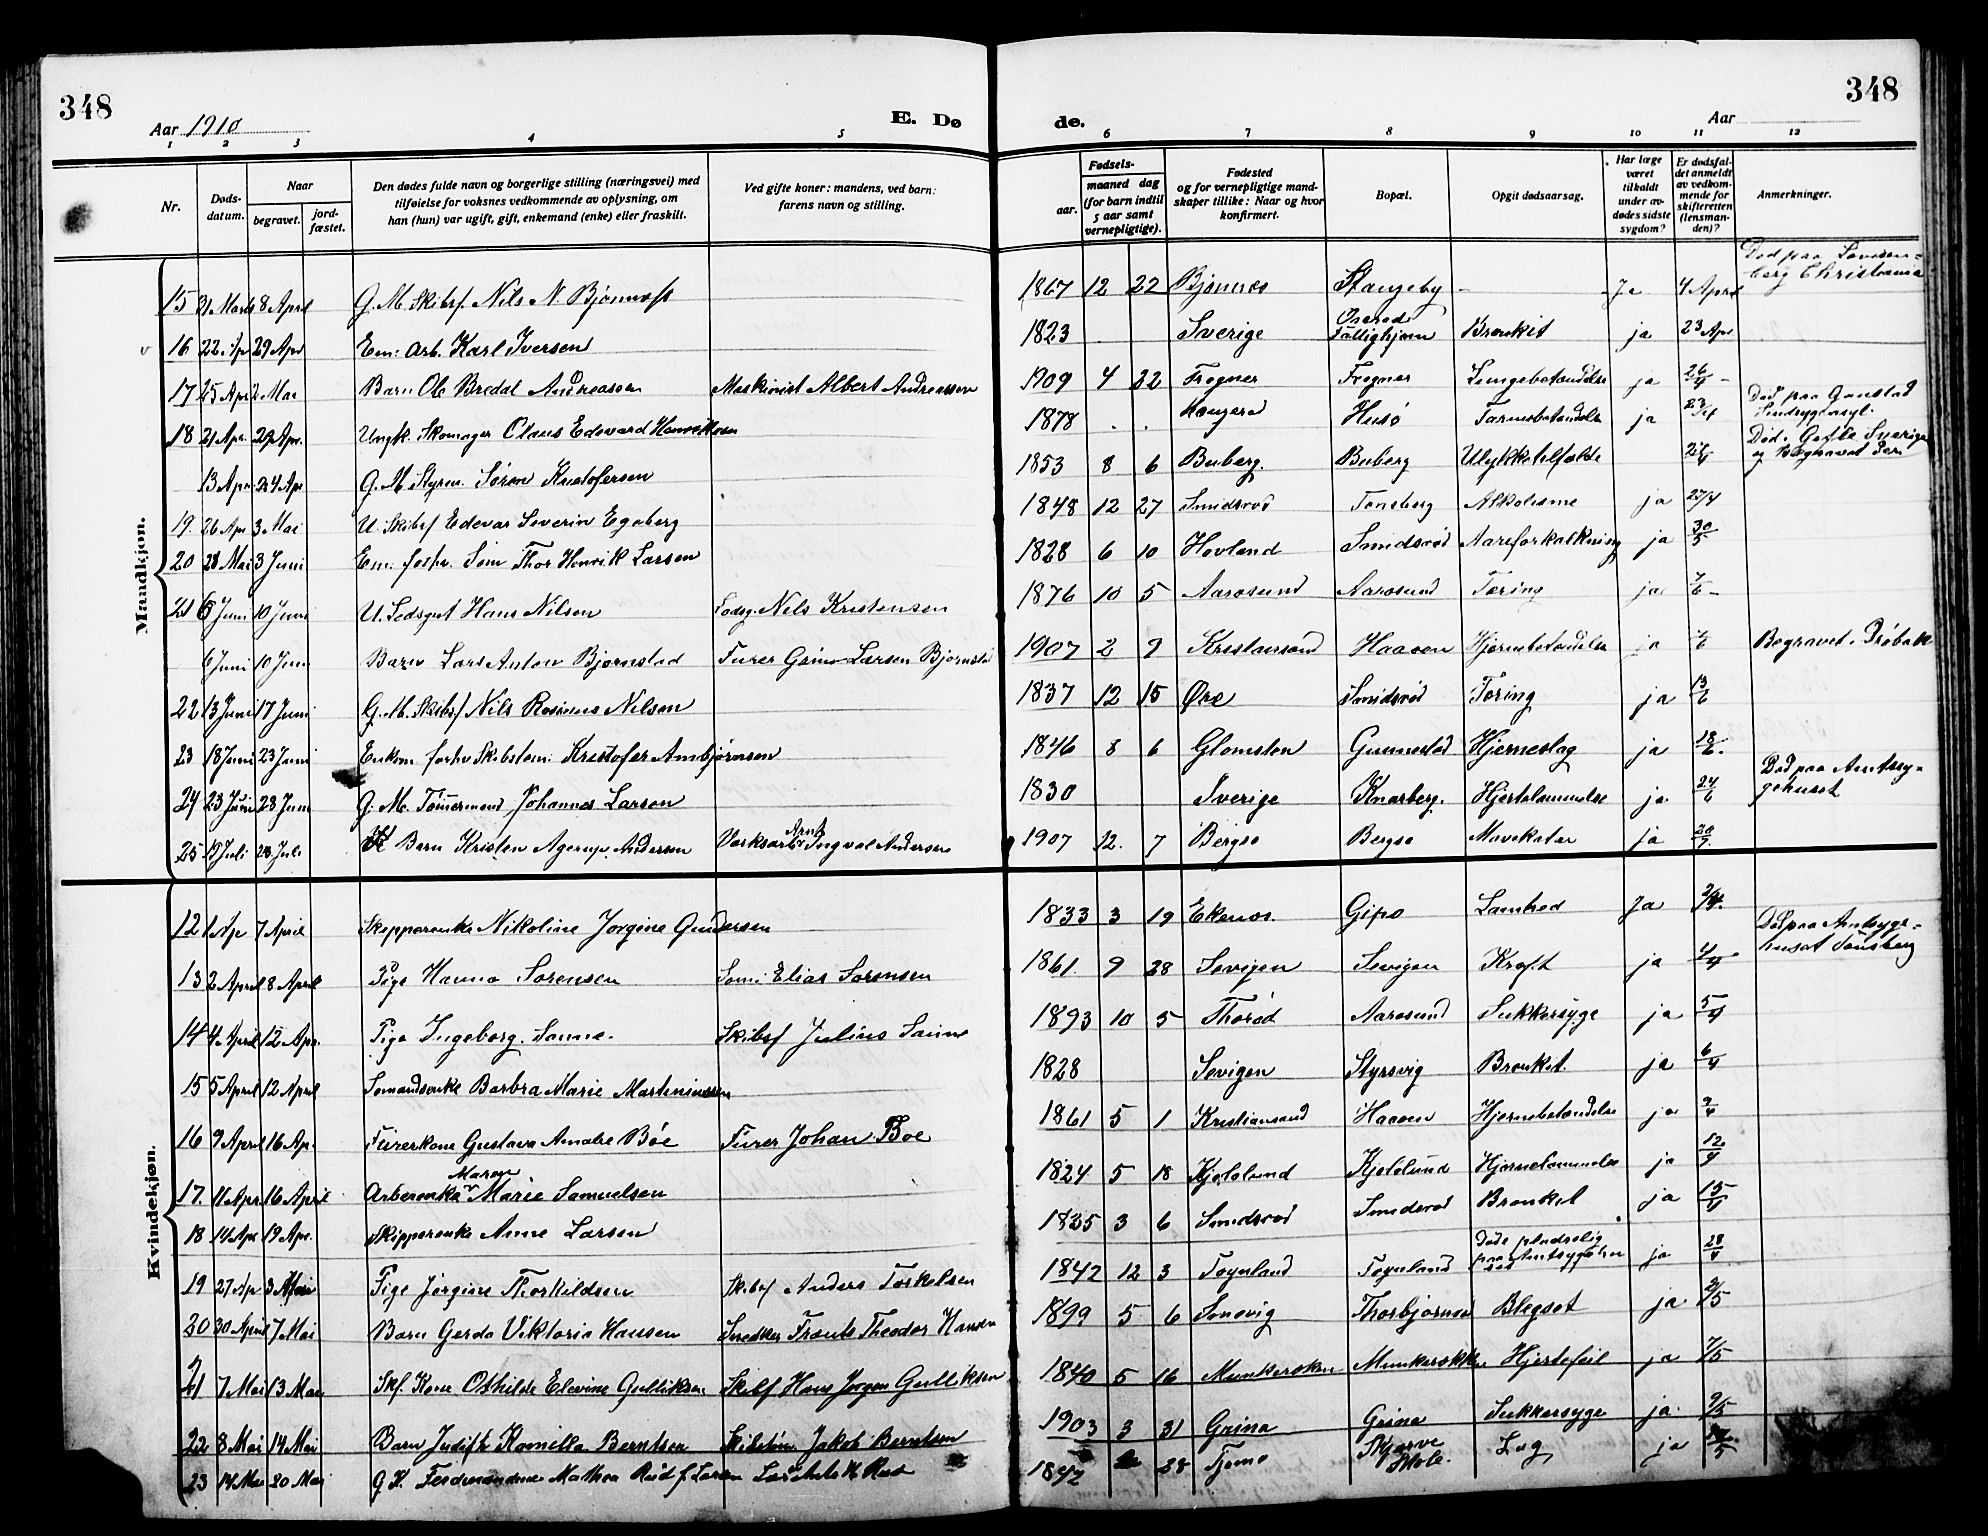 348
Aar 1910
E. Dø
de.
Aar
348
1 2 3 4 5 6 7 8 9 10 11 12
Nr.
Døds-
datum.
Naar
begravet.
jord-
fæstet.
Den dødes fulde navn og borgerlige stilling (næringsvei) med
tilføielse for voksnes vedkommende av oplysning, om
han (hun) var ugift, gift, enkemand (enke) eller fraskilt.
Ved gifte koner: mandens, ved barn:
farens navn og stilling.
Fødsels-
aar.
maaned dag
(for barn indtil
5 aar samt
vernepligtige).
Fødested
og for vernepligtige mand-
skaper tillike: Naar og hvor
konfirmert.
Bopæl.
Opgit dødsaarsag.
Har læge
været
tilkaldt
under av-
dødes sidste
sygdom?
Er dødsfal-
det anmeldt
av vedkom-
mende for
skifteretten
(lensman-
den)?
Anmerkninger.
Mandkjøn.
15 31 Marts 8 April G. M. Skibsf Nils N. Bjønnæs 1867 12 22 Bjønnes Stangeby - Ja 4 April Død paa Lovisen-
berg Christiania
16 22 Ap 29 Apr Em. Arb. Karl Iversen 1823 Sverige Fattighjem Bronkit ja 23 Apr
17 25 Apr 2 Mai Barn Ole Bredal Andreasen Maskinist Albert Andreassen 1909 4 22 Frogner Frogner Lungebetændelse ja 26/4
18 21 Apr. 29 Apr. Ungk. Skomager Claus Edevard 1878 Husø Tarmbetændelse ja Død paa Gaustad
Sindsygeasyl.
13 Apr. 24 Apr G. M. Styrm. Søren Kristofersen 1853 8 6 Buberg. Buberg Ulykkestilfælde Død i Gefle Sverige
og Begravet der
19. 26 Apr 3 Mai U. Skibsf Edevar Severin Egeberg 1848 12 27 Smidsrød Tønsberg Alkolisme ja 27/4
20 28 Mai 3 Juni Em. forhv. Søm Thor Henrik Larsen 1828 6 10 Hovland Smidsrød Aareforkalkning ja 30/5
21 6 Juni 10 Juni U. Lodsgut Hans Nilsen Lodsg. Nels Kristensen 1876 10 5 Aarøsund Aarøsund Tæring ja 7/6
6 Juni 10 Juni Barn Lars Anton Bjørnstad Furer Larsen Bjørnstad 1907 2 9 Kristiansand Haaøen Hjernebetændelse ja Begravet i Drøbak
22 13 Juni 17 Juni G. M. Skibsf Nils Rasmus Nilsen 1837 12 15 Øre Smidsrød Tæring ja 13/6
23 18 Juni 23 Juni Enkem. forhv Skibstøm. Kristofer Ambjørnsen 1846 8 6 Glomsten Gunnestad Hjerneslag ja 18/6
24 23 Juni 28 Juni G. M. Tømmermand Johannes Larsen 1830 Sverige Knarberg. Hjertelammelse ja. 24/6 Død paa Amtssy-
gehuset
25 19 Juli Juli Barn Kristen Agerup Andersen Verksarb Arnt Ingval Andersen 1907 12. 7 Bergsø Bergsø Mavekatar ja 20/7
Kvindekjøn.
12 1 Ap 7 April Skipperenke Nikoline Jørgine Gundersen 1833 3 19 Ekenes. Gipø Lamhed Ja
13 2 April 8 April Pige Hanna Sørensen Søm. Elias Sørensen 1861 9 28 Søvigen Søvigen Kræft ja 4/4 Død paa Amtsyge-
huset Tønsberg
14 4 April 12 Apr. Pige Ingeborg. Sanne. Skibsf Julius Sanne 1893 10 5 Thorød Aarøsund Sukkersyge ja 5/4
15 5 April 12 April Sømandsenke Barbra Marie Martiniussen 1828 Søvigen Styrsvig Bronkit. ja 6/4
16 9 April 16 Ap. Furerkone Gustava Amalie Bøe Furer Johan Bøe 1861 5 1 Kristiansand Haaøen Hjernebetændelse ja 9/4
17. 11 Apr 16 April Arberenke Maren Marie Samuelsen 1824 5 18 Kjølelund Kjølelund Hjernelammelse ja 12/4
18 14 Apr 19 Apr. Skipperenke Anne Larsen 1825 3 6 Smidsrød Smidsrød Bronkit ja 15/4
19 27 Ap 3 Mai Pige Jørgine Thorkildsen Skibsf Anders Torkelsen 1842 12 3 Føynland Føynland Døde pludselig
paa Amtsygehu
set ja 28/4
20 30 April 7 Mai Barn Gerda Viktoria Hansen Snedker Frants Theodor Hansen 1899 5 6 Snevig Thorbjørnsrød Blegsot ja 2/5
21 7 Mai 13 Mai Skf. Kone Othilde Elevine Gulliksen Skibsf Hans Jørgen Gulliksen 1840 5 16 Munkerøken Munkerøkken Hjertefeil ja 7/5
22 8 Mai 14 Mai Barn Judith Kamilla Berntsen Skibstøm Jakob Berntsen 1903 3 31 Grina Grina Sukkersyge ja. 9/5
23 14 Mai 20 Mai G K. Ferdinandine Mathea Rud f. Larsen Rud 1842 28 Tjømø Skjerve Skole. ja